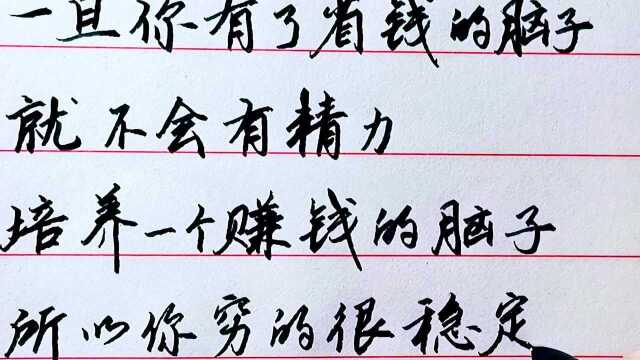 一旦你有了省钱的脑子
就不会有精力
培养一个赚钱的脑子
所以你穷的很稳定